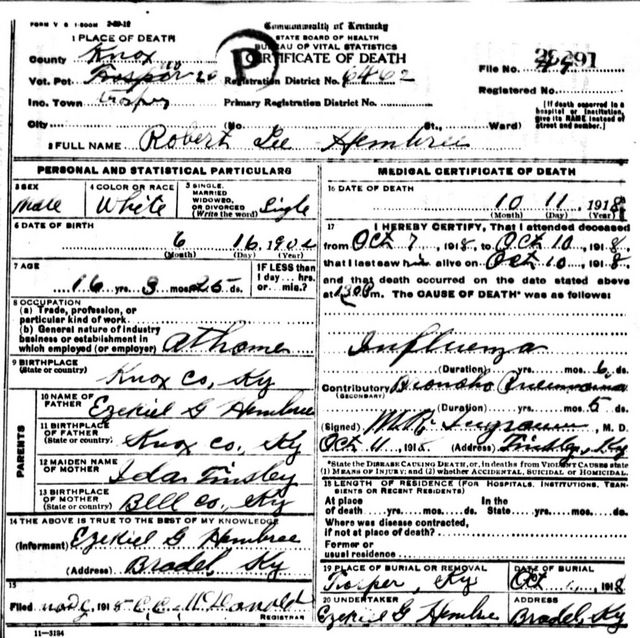 FORM V S 1-500M 2-29-12
Commonwealth of Kentucky
1 PLACE OF DEATH
STATE BOARD OF HEALTH
County Knox
BUREAU OF VITAL STATISTICS
P
CERTIFICATE OF DEATH
Vot. Pct Trosper 20 Registration District No. 6462
File No.
Inc. Town Trosper Primary Registration District No.
Registered No.
[If death occurred in a hospital or institution, give its NAME instead of street and number.]
City (No. St., Ward)
2 FULL NAME Robert Lee Hembree
PERSONAL AND STATISTICAL PARTICULARS
3 SEX
Male
4 COLOR OR RACE
White
5 SINGLE, MARRIED WIDOWED, OR DIVORCED (Write the word) Single
6 DATE OF BIRTH
6 16 1902
(Month) (Day) (Year)
7 AGE
16 yrs. 3 mos. 25 ds.
IF LESS than 1 day... hrs. or min.?
8 OCCUPATION
(a) Trade, profession, or particular kind of work.
(b) General nature of industry business or establishment in which employed (or employer) At home
9 BIRTHPLACE
(State or country)
Knox Co, Ky
PARENTS
10 NAME OF FATHER
Ezekiel G Hembree
11 BIRTHPLACE OF FATHER
(State or country) Knox Co, Ky
12 MAIDEN NAME OF MOTHER
Ida Tinsley
13 BIRTHPLACE OF MOTHER
(State or country) Bell Co, Ky
14 THE ABOVE IS TRUE TO THE BEST OF MY KNOWLEDGE
(Informant) Ezekiel G Hembree
(Address) Ky
15
Filed 1918 McDonald
REGISTRAR
11-3184
MEDICAL CERTIFICATE OF DEATH
16 DATE OF DEATH
10 11 1918
(Month) (Day) (Year)
17 I HEREBY CERTIFY, That I attended deceased
from Oct 7, 1918, to Oct 10, 1918,
that I last saw him alive on Oct 10, 1918,
and that death occurred on the date stated above
at m. The CAUSE OF DEATH* was as follows:
Influenza
(Duration) yrs. mos. 6 ds.
Contributory Broncho Pneumonia
(SECONDARY)
(Duration) yrs. mos. 5 ds.
(Signed) M.D.
Oct 11, 1918 (Address) Tinsley, Ky
*State the DISEASE CAUSING DEATH, or, in deaths from VIOLENT CAUSES state (1) MEANS OF INJURY; and (2) whether ACCIDENTAL, SUICIDAL or HOMICIDAL.
18 LENGTH OF RESIDENCE (FOR HOSPITALS, INSTITUTIONS, TRANSIENTS OR RECENT RESIDENTS)
At place of death yrs. mos. ds. In the State yrs. mos. ds.
Where was disease contracted, if not at place of death?
Former or usual residence
19 PLACE OF BURIAL OR REMOVAL
Trosper, Ky
DATE OF BURIAL
Oct 1918
20 UNDERTAKER
Ezekiel G Hembree
ADDRESS
Ky